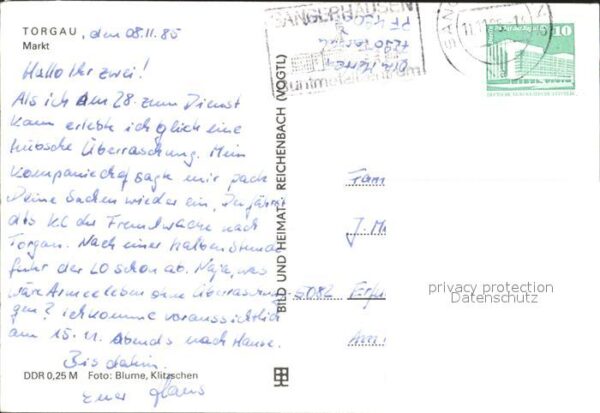 TORGAU, den 08.11.85
Markt
Hallo Ihr zwei!
Als ich am 28. zum Dienst
kam erlebte ich gleich eine
hübsche Überraschung. Mein
Kompaniechef sagte mir, pack
Deine Sachen wieder ein, Du fährst
als KC der Fremdwache nach
Torgau. Nach einer halben Stunde
fuhr der LO schon ab. Naja, was
wäre Armeeleben ohne Überraschun-
gen? Ich komme voraussichtlich
am 15.11. abends nach Hause.
Bis dahin.
Euer
DDR 0,25 M Foto: Blume, Klitzschen
BILD UND HEIMAT · REICHENBACH (VOGTL)
SANGERHAUSEN
10
Fam
5082
privacy protection
Datenschutz